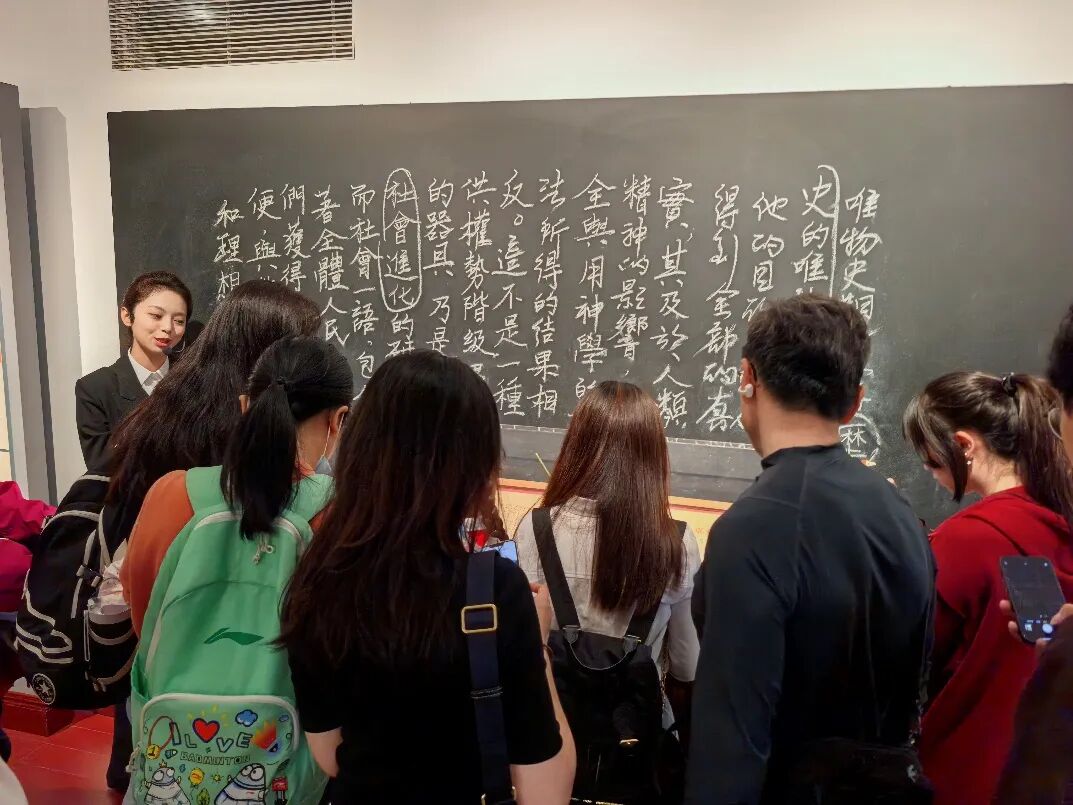 唯物史觀
史的唯
他的目
得到全部的真
實,其及於人類
精神的影響,
全與用神學的
法所得的結果相
反。這不是一種
供權勢階級
的器具,乃是
社會進化的研
而社會一語,包
著全體人民
們獲得
便,與
和理想
I L♥VE
BADMINTON